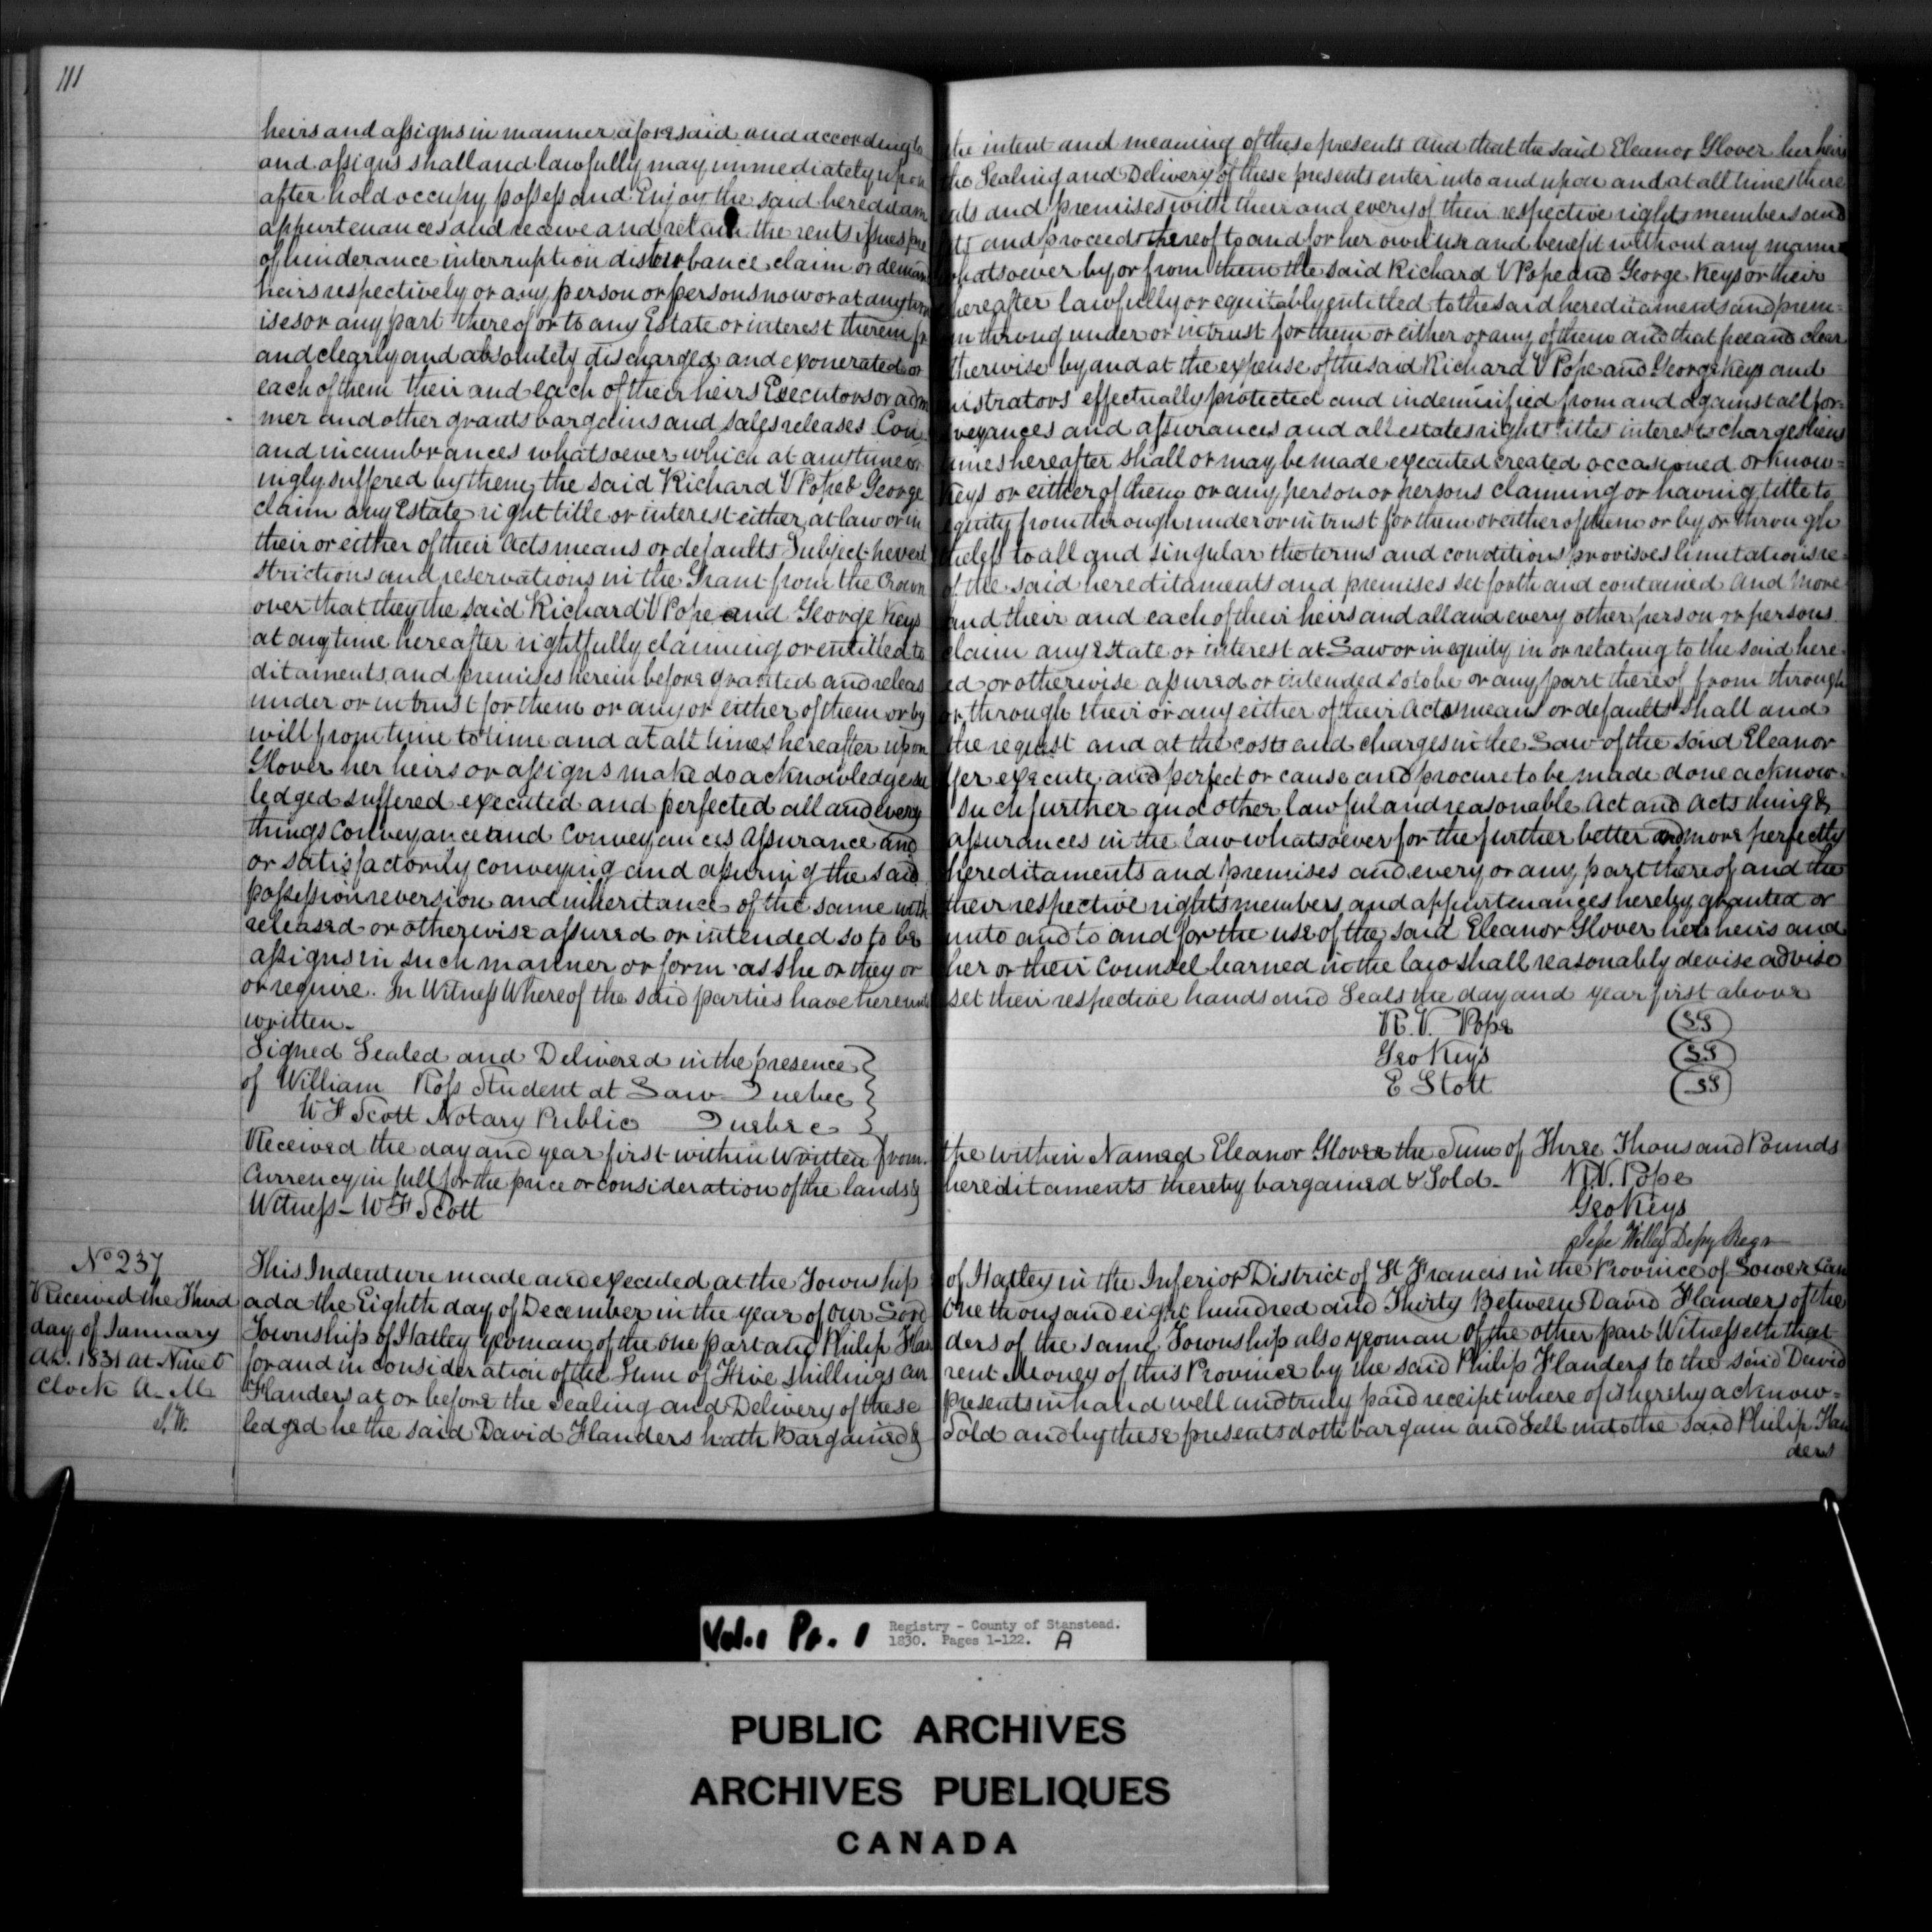 111
heirs and assigns in manner aforesaid and according to the intent and meaning of these presents And that the said Eleanor Glover her heirs
and assigns shall and lawfully may immediately upon the Sealing and Delivery of these presents enter into and upon and at all times there
after hold occupy possess and Enjoy the said hereditam ents and premises with their and every of their respective rights members and
appurtenances and receive and retain the rents issues pro fits and proceeds thereof to and for her own use and benefit without any manner
of hinderance interruption disturbance claim or demand whatsoever by or from them the said Richard V Pope and George Keys or their
heirs respectively or any person or persons now or at any time hereafter lawfully or equitably entitled to the said hereditaments and prem=
ises or any part thereof or to any Estate or interest therein from through under or in trust for them or either or any of them and that free and clear
and clearly and absolutely discharged and exonerated or otherwise by and at the expense of the said Richard V Pope and George Keys and
each of them their and each of their heirs Executors or admi nistrators effectually protected and indemnified from and against all for=
mer and other grants bargains and sales releases Con veyances and assurances and all estates rights titles interests charges liens
and incumbrances whatsoever which at any time or times hereafter shall or may be made executed created occasioned or know=
ingly suffered by them the said Richard V Pope & George Keys or either of them or any person or persons claiming or having title to
claim any Estate right title or interest either at law or in equity from through under or in trust for them or either of them or by or through
their or either of their Acts means or defaults Subject nevert theless to all and singular the terms and conditions provisoes limitations re=
strictions and reservations in the Grant from the Crown of the said hereditaments and premises set forth and contained And More
over that they the said Richard V Pope and George Keys and their and each of their heirs and all and every other person or persons
at any time hereafter rightfully claiming or entitled to claim any Estate or interest at Law or in equity in or relating to the said here=
ditaments and premises herein before granted and releas ed or otherwise assured or intended so to be or any part thereof from through
under or in trust for them or any or either of them or by or through their or any either of their Acts means or defaults shall and
will from time to time and at all times hereafter upon the request and at the costs and charges in the Law of the said Eleanor
Glover her heirs or assigns make do acknowledge su ffer execute and perfect or cause and procure to be made done acknow=
ledged suffered executed and perfected all and every such further and other lawful and reasonable Act and Acts thing &
things Conveyance and Conveyances Assurance and assurances in the law whatsoever for the further better and more perfectly
or satisfactorily conveying and assuring the said hereditaments and premises and every or any part thereof and the
possession reversion and inheritance of the same with their respective rights members and appurtenances hereby granted or
released or otherwise assured or intended so to be unto and to and for the use of the said Eleanor Glover her heirs and
assigns in such manner or form as she or they or her or their Counsel learned in the law shall reasonably devise advise
or require. In Witness Whereof the said parties have hereunto set their respective hands and Seals the day and year first above
written.
R. V. Pope (SS)
Signed Sealed and Delivered in the presence Geo Keys (SS)
of William Ross Student at Law Quebec E Stott (SS)
W F Scott Notary Public Quebec
Received the day and year first within Written from the within Named Eleanor Glover the Sum of Three Thousand Pounds
Currency in full for the price or consideration of the lands & hereditaments thereby bargained & Sold_ R.V. Pope
Witness_ W F Scott Geo Keys
Depy Regr
No 237
Received the Third
day of January
AD. 1831 at Nine O
Clock A. M.
S.W.
This Indenture made and executed at the Township of Hatley in the Inferior District of St Francis in the Province of Lower Can
ada the Eighth day of December in the year of Our Lord One thousand eight hundred and Thirty Between David Flanders of the
Township of Hatley yeoman of the one part and Philip Flan ders of the same Township also yeoman Of the other part Witnesseth that
for and in consideration of the Sum of Five shillings cur rent Money of this Province by the said Philip Flanders to the said David
Flanders at or before the Sealing and Delivery of these presents in hand well and truly paid receipt where of is hereby acknow=
ledged he the said David Flanders hath Bargained & Sold and by these presents doth bargain and Sell unto the said Philip Flan
ders
Vol. 1 Pt. 1 Registry - County of Stanstead.
1830. Pages 1-122. A
PUBLIC ARCHIVES
ARCHIVES PUBLIQUES
CANADA